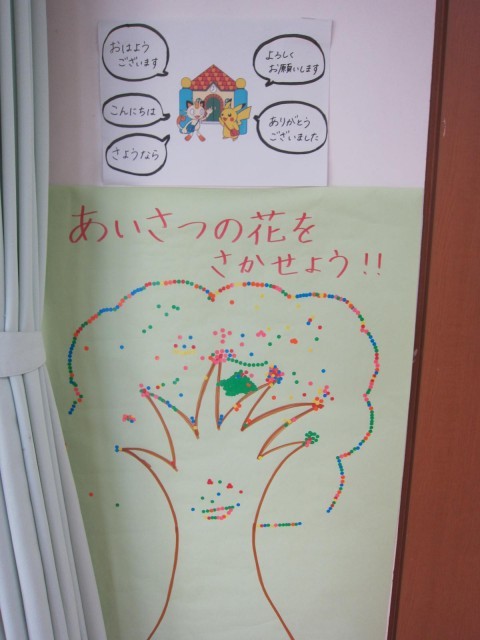 おはよう
ございます
こんにちは
さようなら
よろしく
お願いします
ありがとう
ございました
あいさつの花を
さかせよう!!